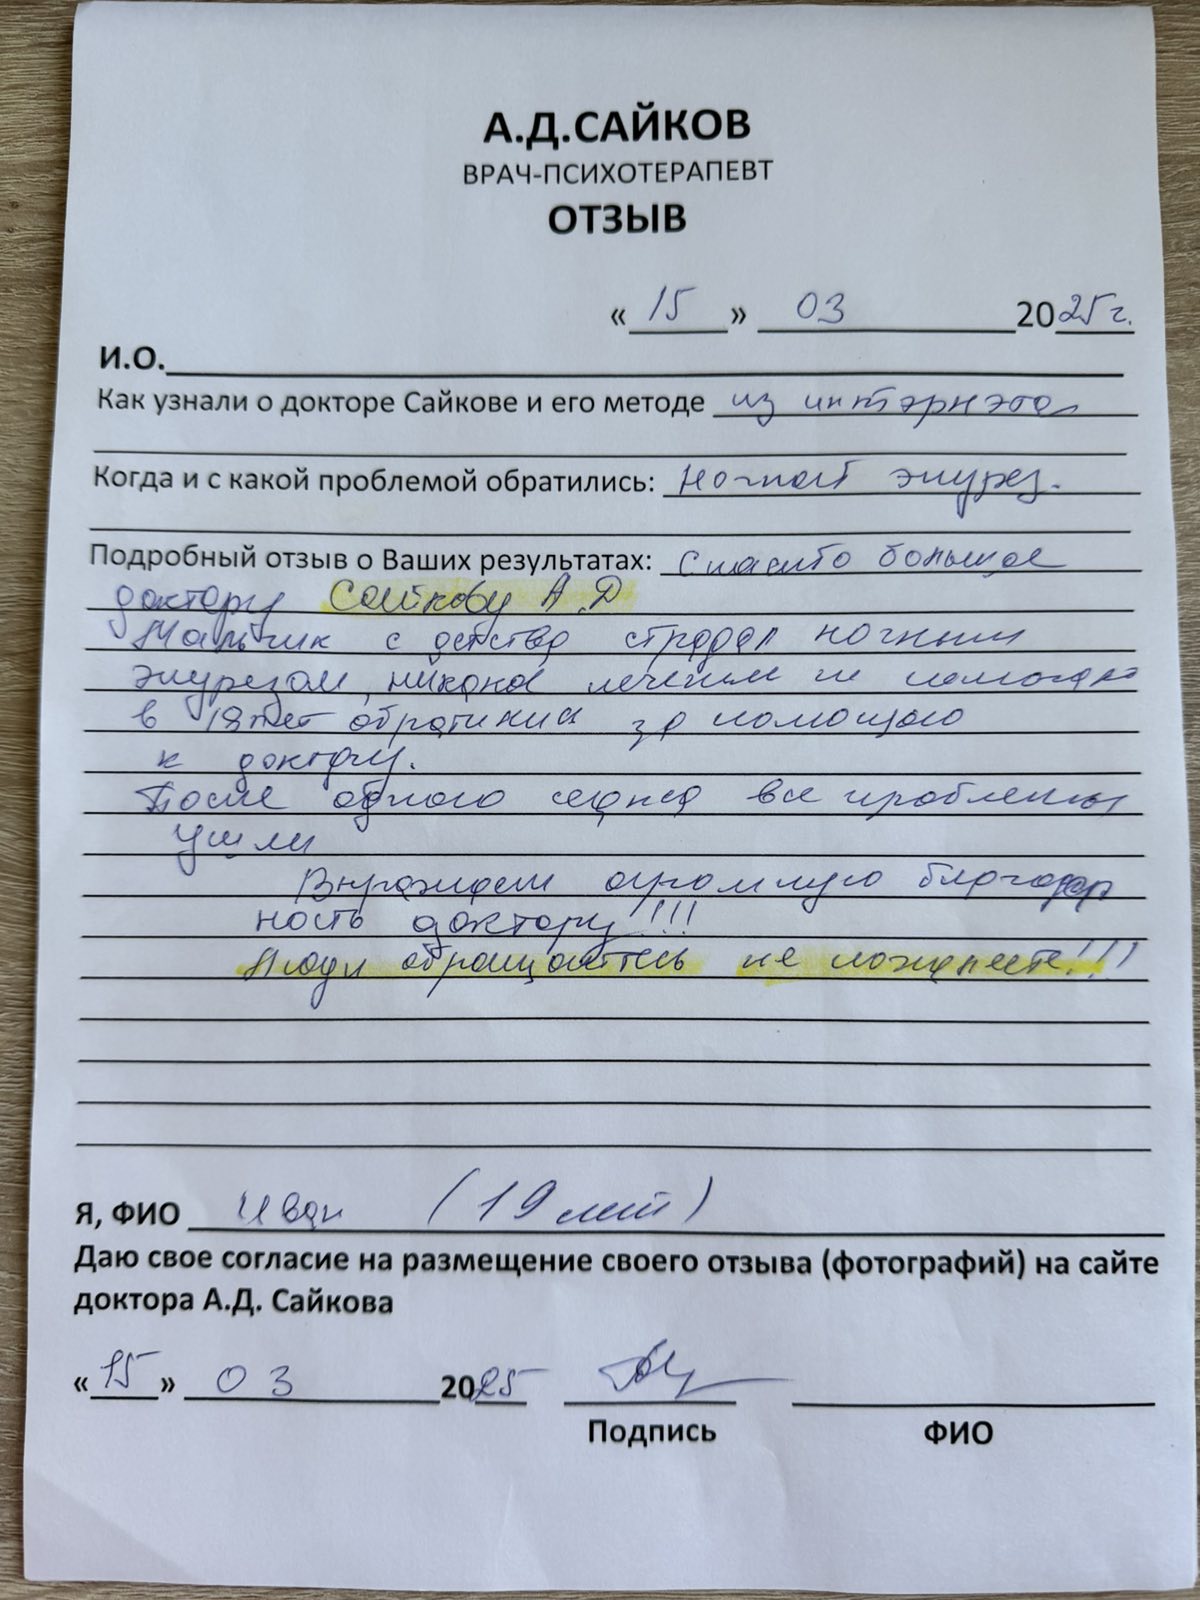 А.Д.САЙКОВ
ВРАЧ-ПСИХОТЕРАПЕВТ
ОТЗЫВ
«15» 03 2025г.
И.О.
Как узнали о докторе Сайкове и его методе из интернэта
Когда и с какой проблемой обратились: Ночной энурез.
Подробный отзыв о Ваших результатах: Спасибо большое
доктору Сайкову А.Д
Мальчик с детства страдал ночным
энурезом, никакое лечение не помогало
в 19 лет обратились за помощью
к доктору.
После одного сеанса все проблемы
ушли
Выражаем огромную благодар
ность доктору!!!
Люди обращайтесь не пожалеете!!!
Я, ФИО Иван (19 лет)
Даю свое согласие на размещение своего отзыва (фотографий) на сайте
доктора А.Д. Сайкова
«15» 03 2025
Подпись ФИО